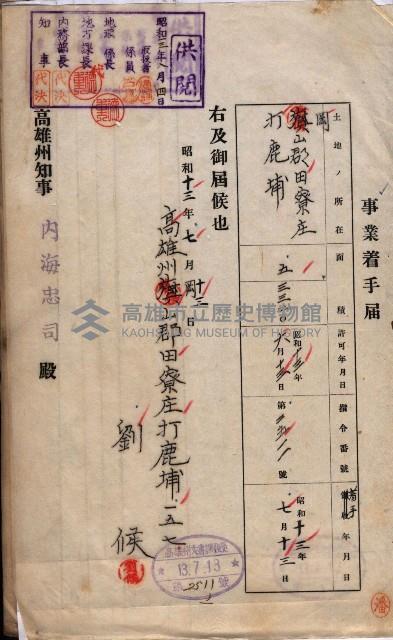 事業着手届
土地ノ所在
岡山郡田寮庄
打鹿埔
面積
五三三〇
許可年月日
昭和十三年
六月十三日
指令番號
第三五一一號
着手年月日
昭和十三年
七月十三日
右及御届候也
昭和十三年七月十三日
高雄州岡山郡田寮庄打鹿埔一五七
劉候
高雄州知事 內海忠司 殿
供閱
昭和三年八月四日
取扱者
係員
地理係長
地方課長
代
內務部長
代決
知事
代決
13.7.13
第2511號
潘
高雄市立歷史博物館
KAOHSIUNG MUSEUM OF HISTORY